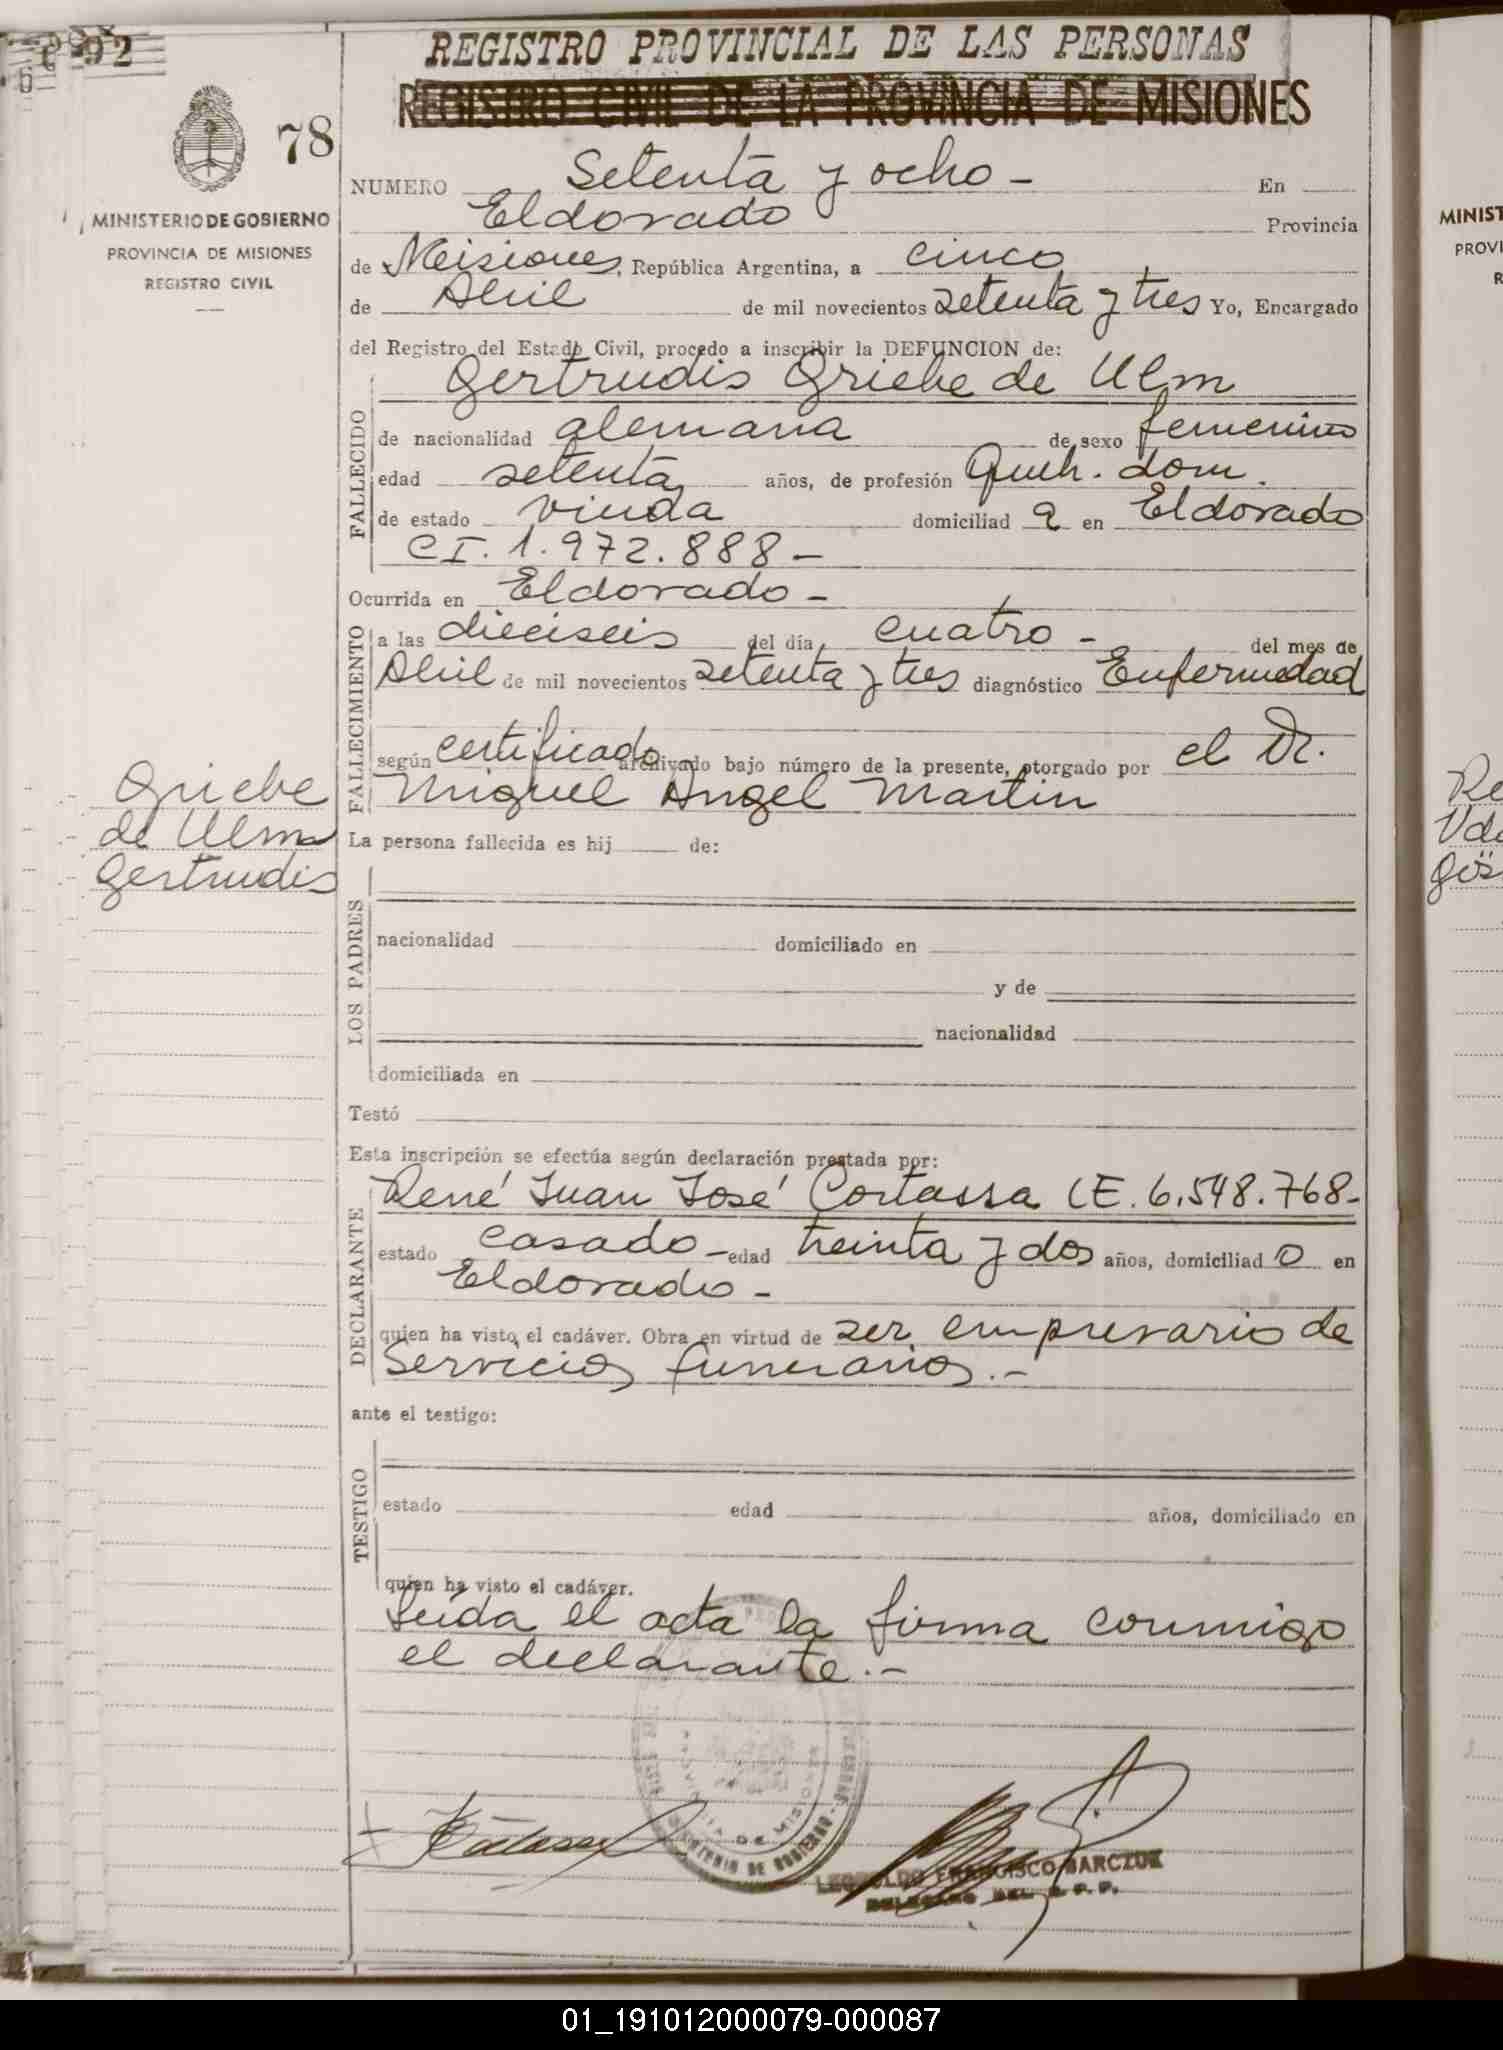 REGISTRO PROVINCIAL DE LAS PERSONAS
REGISTRO CIVIL DE LA PROVINCIA DE MISIONES
92
78
MINISTERIO DE GOBIERNO
PROVINCIA DE MISIONES
REGISTRO CIVIL
NUMERO Setenta y ocho - En
Eldorado Provincia
de Misiones, República Argentina, a cinco
de Abril de mil novecientos setenta y tres Yo, Encargado
del Registro del Estado Civil, procedo a inscribir la DEFUNCION de:
Gertrudis Griebe de Ulm
FALLECIDO
de nacionalidad alemana de sexo femenino
edad setenta años, de profesión Queh. dom.
de estado viuda domiciliad a en Eldorado
CI. 1.972.888 -
Ocurrida en Eldorado -
FALLECIMIENTO
a las dieciseis del día cuatro - del mes de
Abril de mil novecientos setenta y tres diagnóstico Enfermedad
según certificado archivado bajo número de la presente, otorgado por el Dr.
Miguel Angel Martin
Griebe
de Ulm
Gertrudis
La persona fallecida es hij de:
LOS PADRES
nacionalidad domiciliado en
y de
nacionalidad
domiciliada en
Testó
Esta inscripción se efectúa según declaración prestada por:
DECLARANTE
René Juan José Cortassa LE. 6.548.768-
estado casado - edad treinta y dos años, domiciliad o en
Eldorado -
quien ha visto el cadáver. Obra en virtud de ser empresario de
servicios funerarios.-
ante el testigo:
TESTIGO
estado edad años, domiciliado en
quien ha visto el cadáver.
Leída el acta la firma conmigo
el declarante.-
PROVINCIA DE MISIONES
MINISTERIO DE GOBIERNO
LEOPOLDO FRANCISCO BARCZUK
DELEGADO DEL R.P.P.
MINIST
PROVI
R
Re
Vd
Gös
01_191012000079-000087